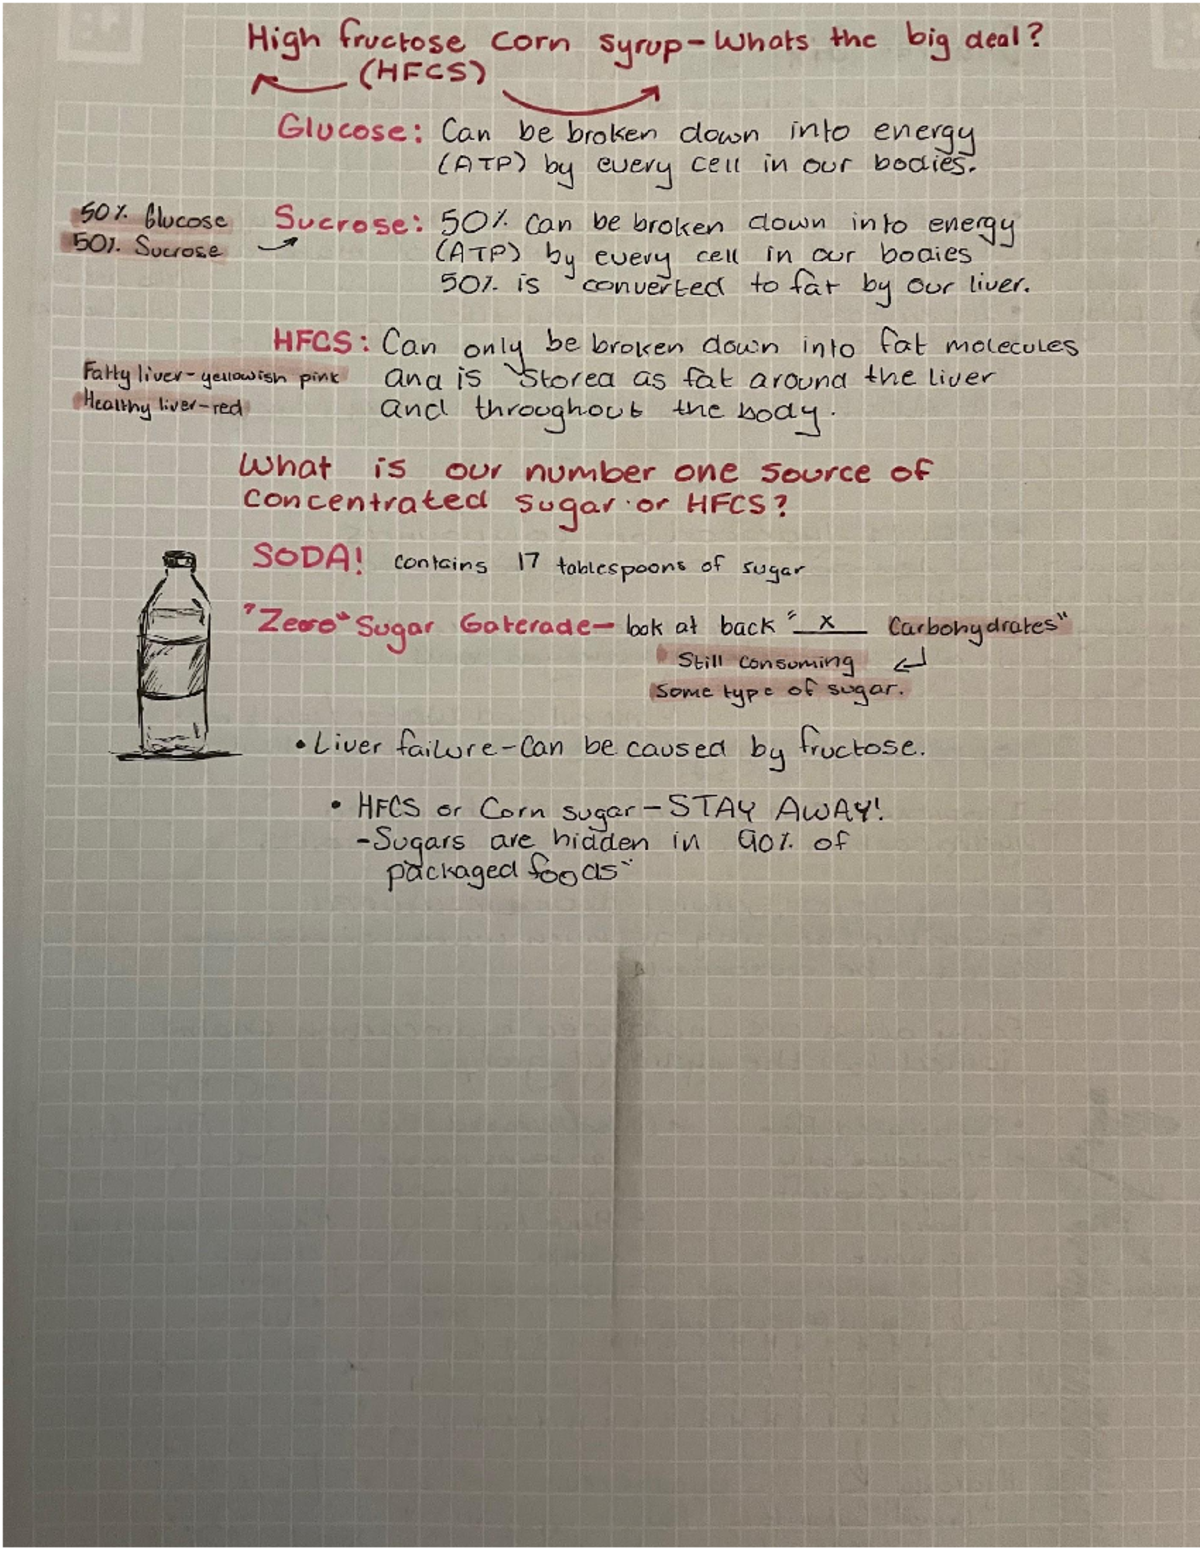 High fructose corn syrup-Whats the big deal?
(HFCS)
Glucose: Can be broken down into energy
(ATP) by every cell in our bodies.
50% Glucose
50% Sucrose
Sucrose: 50% can be broken down into energy
(ATP) by every cell in our bodies
50% is converted to fat by our liver.
HFCS: Can only be broken down into fat molecules
and is stored as fat around the liver
and throughout the body.
Fatty liver-yellowish pink
Healthy liver-red
What is our number one source of
concentrated sugar or HFCS?
SODA! contains 17 tablespoons of sugar
"Zero" Sugar Gaterade- look at back "__x__ Carbohydrates"
Still consuming
some type of sugar.
• Liver failure-Can be caused by fructose.
• HFCS or Corn sugar-STAY AWAY!
-Sugars are hidden in 90% of
packaged foods"